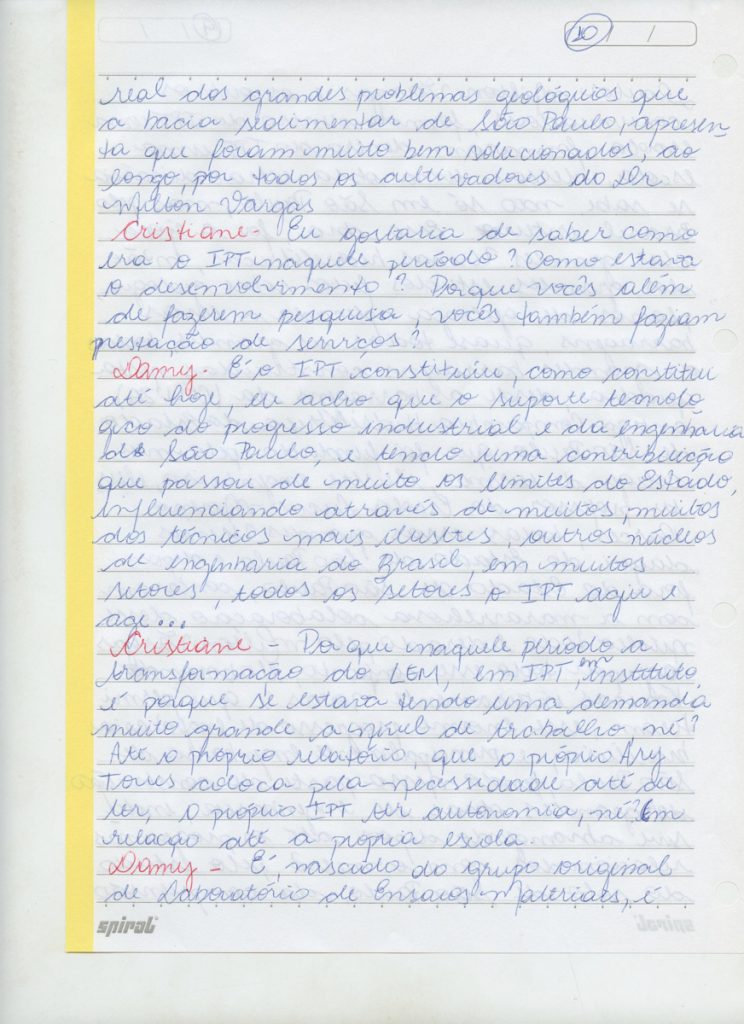 20
real dos grandes problemas geológuios que
a bacia sedimentar de São Paulo, apresen-
ta que foram muito bem solucionados, ao
longo, por todos os cultivadores do Dr
Milton Vargas
Cristiane - Eu gostaria de saber como
era o IPT naquele período? Como estava
o desenvolvimento? Porque vocês além
de fazerem pesquisa, vocês também faziam
prestação de serviços?
Damy - É o IPT constituiu, como constitui
até hoje, eu acho que o suporte tecnolo
gico do progresso industrial e da engenharia
de São Paulo, e tendo uma contribuição
que passou de muito os limites do Estado,
influenciando através de muitos, muitos
dos técnicos mais ilustres, outros núcleos
de engenharia do Brasil, em muitos
setores, todos os setores o IPT aqui e
age...
Cristiane - Porque naquele período a
transformação do LEM, em IPT, em instituto,
é porque se estava tendo uma demanda
muito grande a nível de trabalho, né?
Até o próprio relatório, que o próprio Ary
Torres coloca pela necessidade até de
ter, o próprio IPT ter autonomia, né? Em
relação até a própria escola.
Damy - É, nascido do grupo original
de Laboratório de Ensaios Materiais, e
spiral